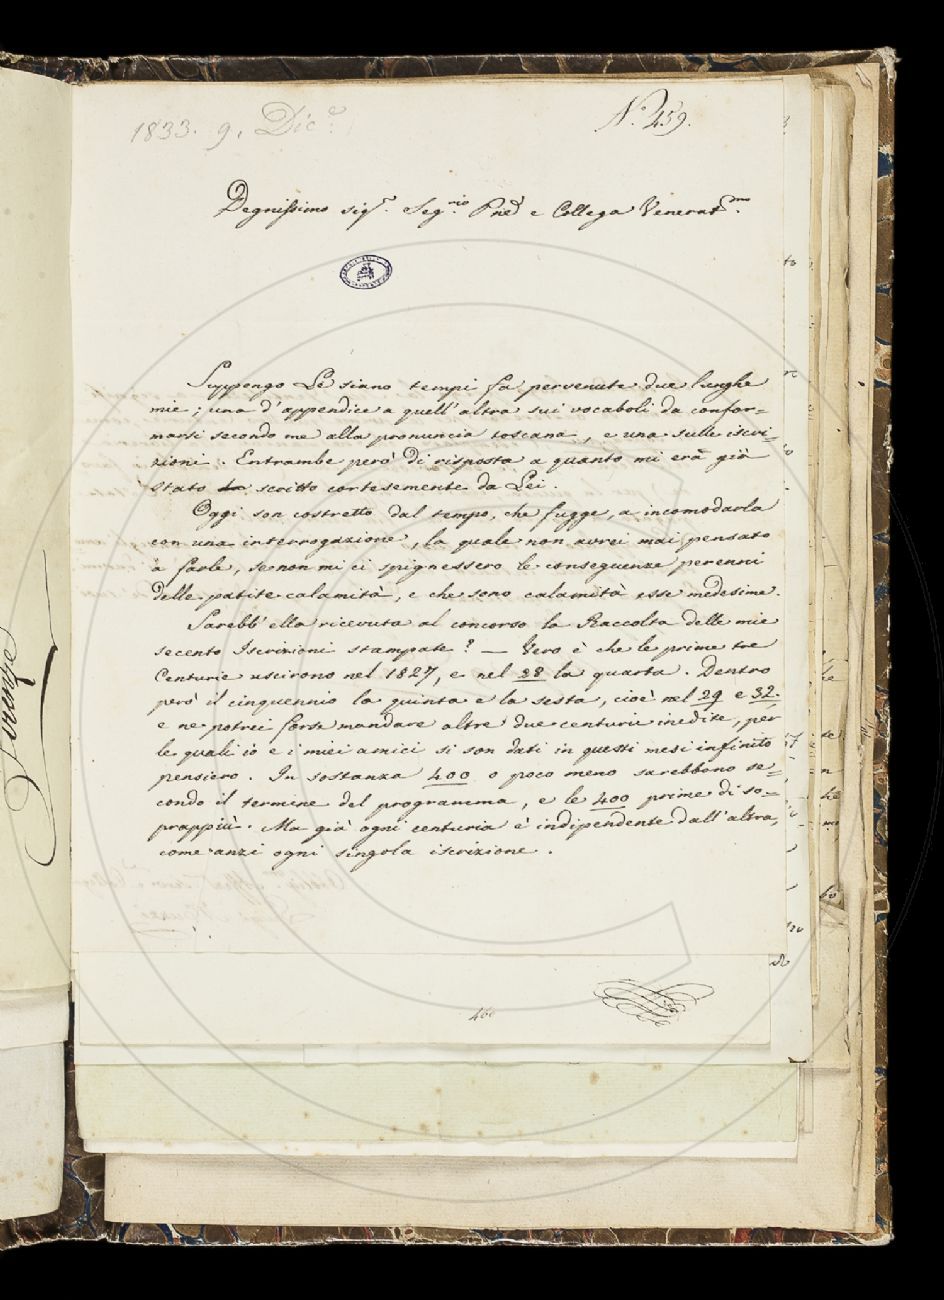 1833. 9. Dic.e
N.o 459.
Degnissimo sig.r Seg.rio Pne e Collega Venerat.mo
Suppongo Le siano tempi fa pervenute due lunghe
mie; una d'appendice a quell'altra sui vocaboli da confor=
marsi secondo me alla pronuncia toscana, e una sulle iscri=
zioni. Entrambe però di risposta a quanto mi era già
stato scritto cortesemente da Lei.
Oggi son costretto dal tempo, che fugge, a incomodarla
con una interrogazione, la quale non avrei mai pensato
a farle, se non mi ci spignessero le conseguenze perenni
delle patite calamità, e che sono calamità esse medesime.
Sarebb'ella ricevuta al concorso la Raccolta delle mie
secento Iscrizioni stampate? — Vero è che le prime tre
Centurie uscirono nel 1827, e nel 28 la quarta. Dentro
però il cinquennio la quinta e la sesta, cioè nel 29 e 32.
e ne potrei forse mandare altre due centurie inedite, per
le quali io e i miei amici si son dati in questi mesi infinito
pensiero. In sostanza 400 o poco meno sarebbono se=
condo il termine del programma, e le 400 prime di so=
prappiù. Ma già ogni centuria è indipendente dall'altra,
come anzi ogni singola iscrizione.
460
Firenze